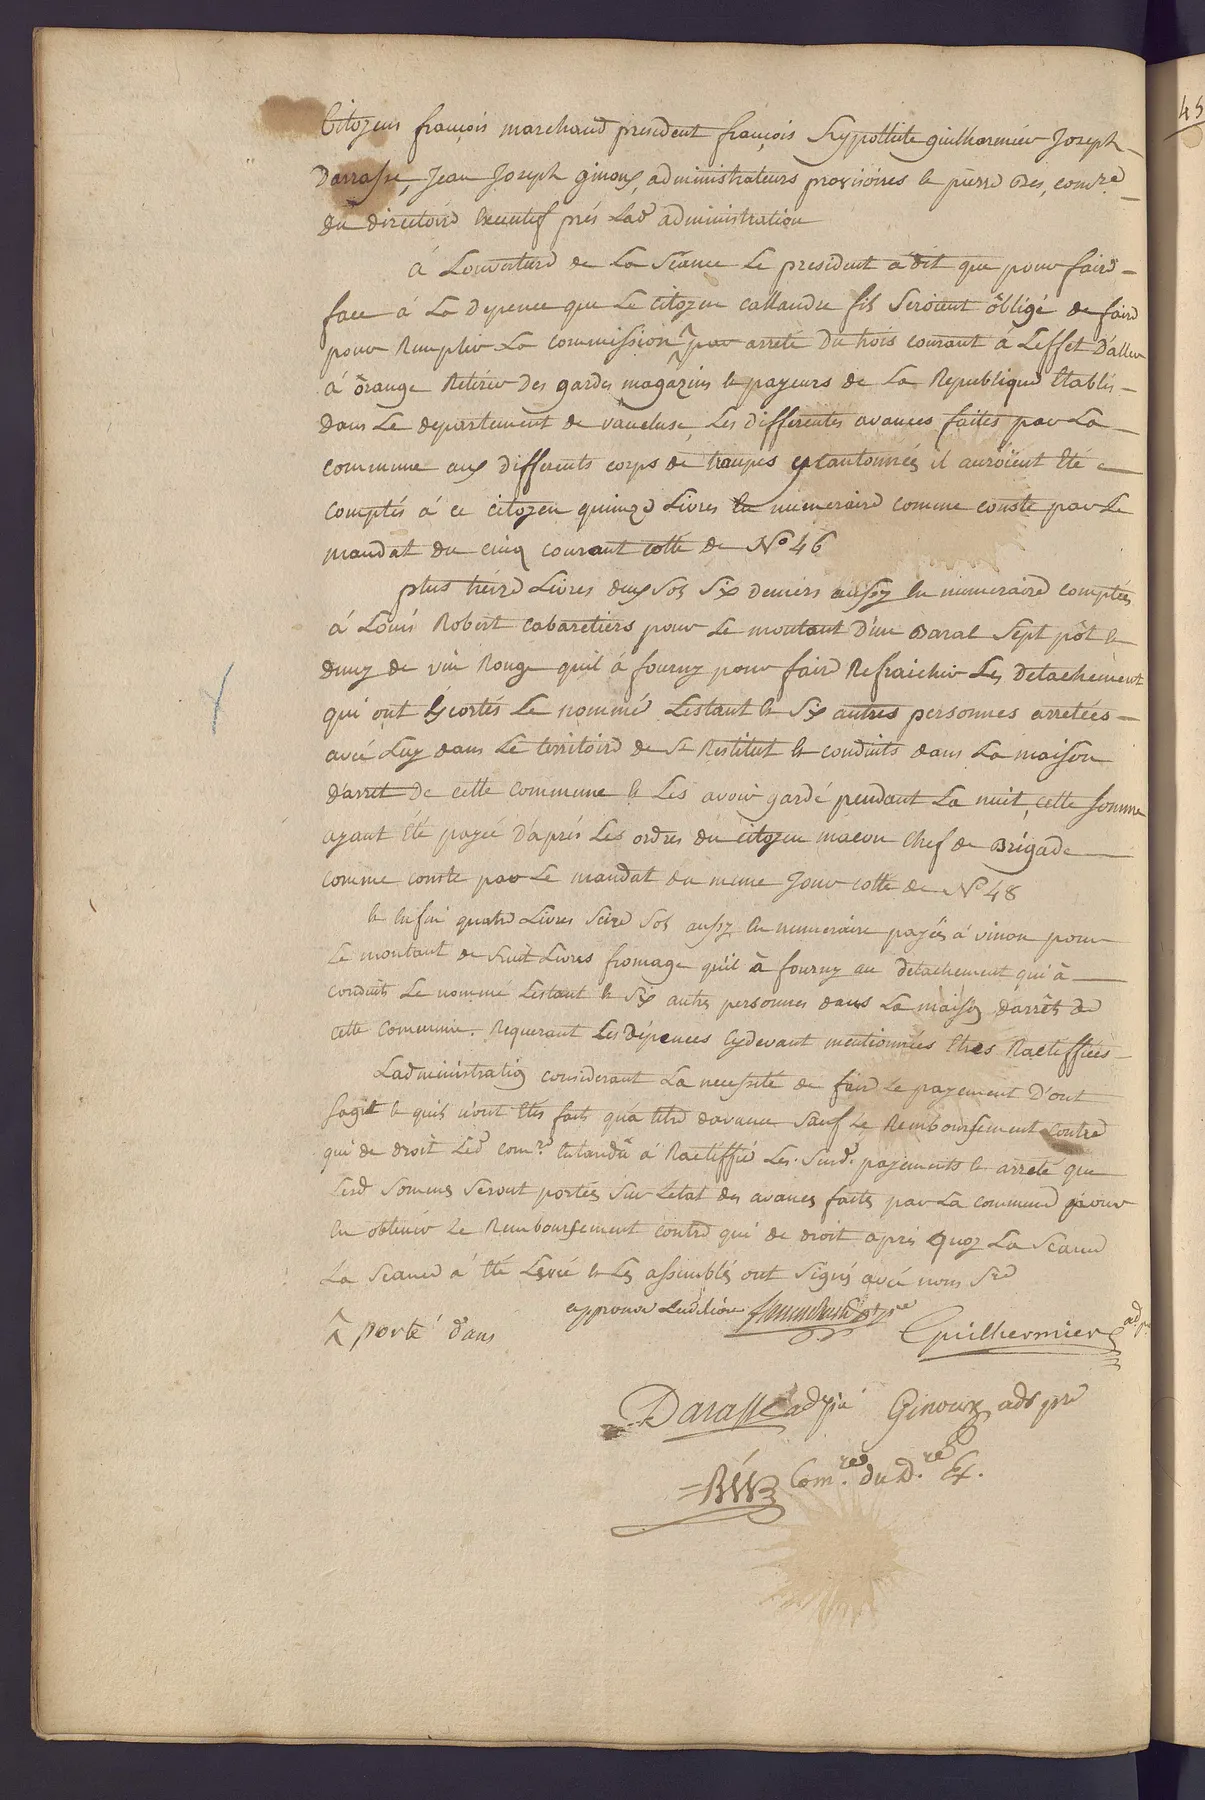 Citoyens françois marchand president françois hyppollite guilhermier Joseph
Darrasse, Jean Joseph ginoux, administrateurs provisoires & pierre Bes, comre
du directoire Executif prés Lad. administration
à Louverture de La Séance Le president a dit que pour faire
face à La depence que Le Citoyen callandre fils Seroient obligé de faire
pour Remplir La commission ^ par arreté du trois courant à Leffet D'aller
à orange Retirer Des gardes magazins & payeurs de La Republique Etablis
dans Le departement de vaucluse, Les differentes avances faites par La
commune aux differents corps de troupes y cantonnés il auroient Eté
comptés à ce citoyen quinze Livres En numeraire comme conste par Le
mandat du cinq courant cotte de No 46
plus treize Livres deux sol Six deniers aussy En numeraire comptées
à Louis Robert Cabaretiers pour Le montant D'un Baral Sept pôt &
demy de vin Rouge quil à fourny pour faire Refraichir Les Detachement
qui ont Escortés Le nommé Lestant & Six autres personnes arretées
avec Luy dans Le territoire de St Restitut & conduits dans La maison
darret De cette Commune & Les avoir gardé pendant La nuit, cette Somme
ayant Eté payée D'aprés Les ordres du citoyen macon Chef de Brigade
comme conste par Le mandat du meme Jour cotte de No 48
& Enfin quatre Livres Seize Sol aussy En numeraire payés à vinon pour
Le montant de huit Livres fromage quil à fourny au detachement qui à
conduits Le nommé Lestant & Six autres personnes dans La maison darrêt de
cette Commune. Requerant Les dépences cydevant mentionnées Etres Ractiffiées
Ladministration considerant La necessité de faire Le payement D'ont
sagit & quils n'ont Etés faits qu'a titre davance Sauf Le Remboursement contre
qui de droit Led. comre. Entandu à Ractiffié Les Susd. payements & arreté que
Lesd Sommes Seront portés Sur Letat des avances faites par La commune pour
En obtenir Le Remboursement contre qui de droit après Quoy La Sceance
La Sceance à Eté Levée & Les assemblés ont Signés avec nous Sre
^ porté dans
approuve Marchand pre
Guilhermier ad. pr
Darasse ad pre Ginoux ads pre
= Bès Comre. du d.re Ex.
45